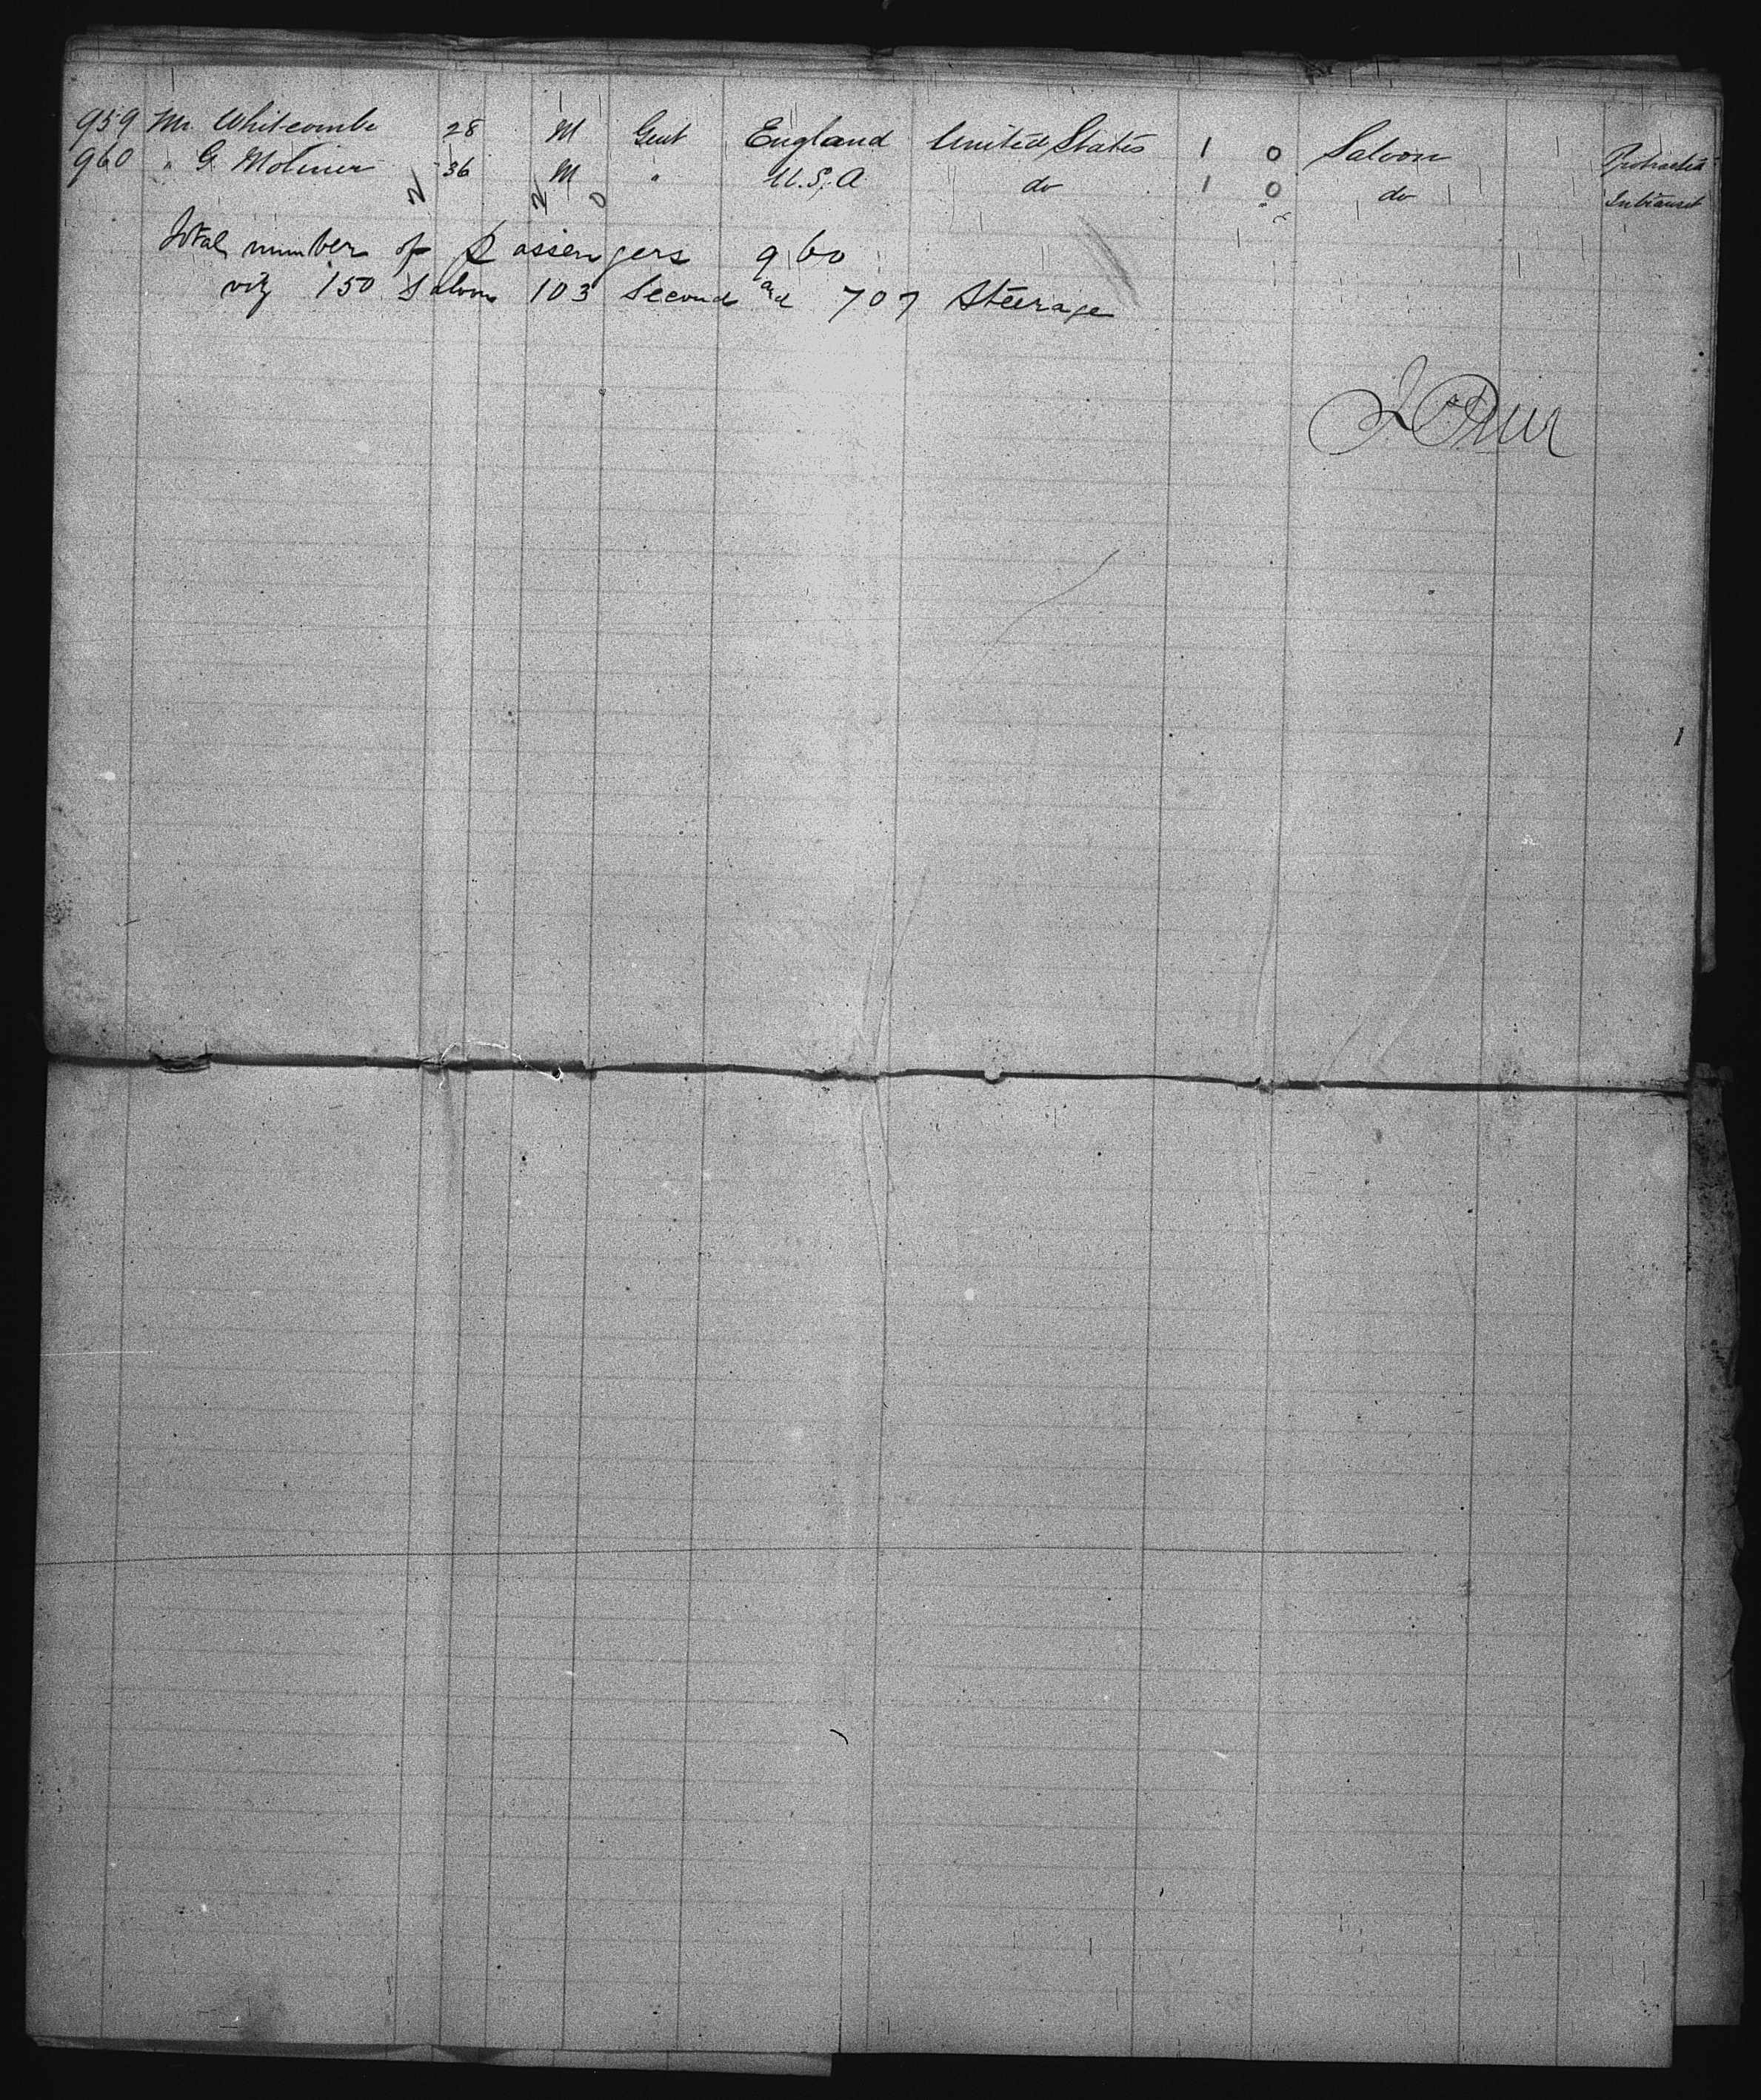 959 Mr. Whitcombe 28 M Gent England United States 1 0 Saloon Protracted
960 " G. Moliner 36 M " U.S.A do 1 0 do Intransit
Total number of Passengers 960
viz 150 Saloon 103 Second and 707 Steerage